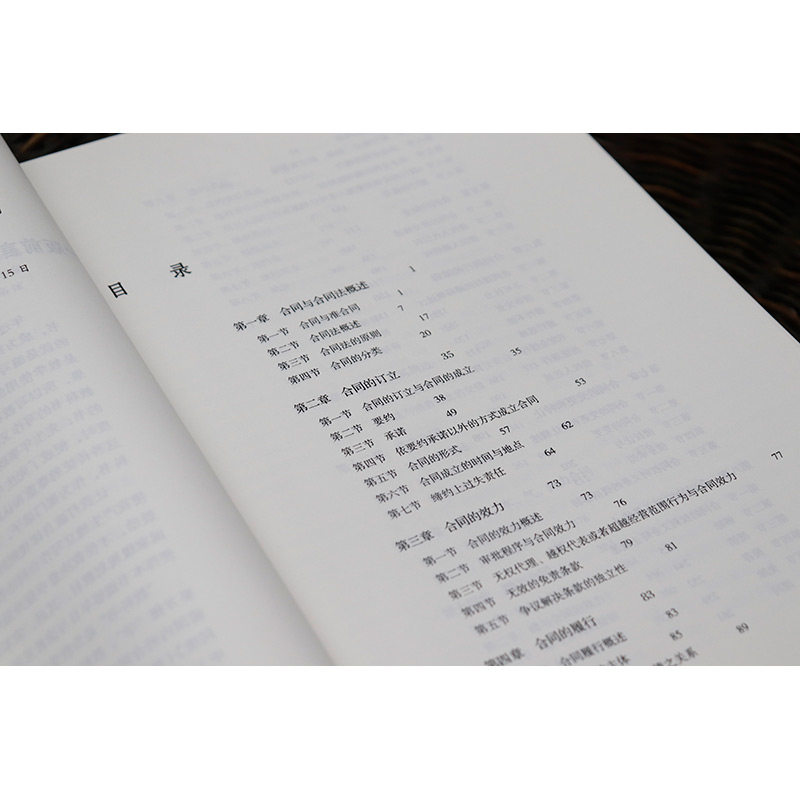 15 日
目 录
第一章 合同与合同法概述 1
第一节 合同与准合同 1
第二节 合同法概述 7
第三节 合同法的原则 17
第四节 合同的分类 20
第二章 合同的订立 35
第一节 合同的订立与合同的成立 35
第二节 要约 38
第三节 承诺 49
第四节 依要约承诺以外的方式成立合同 53
第五节 合同的形式 57
第六节 合同成立的时间与地点 62
第七节 缔约上过失责任 64
第三章 合同的效力 73
第一节 合同的效力概述 73
第二节 审批程序与合同效力 76
第三节 无权代理、越权代表或者超越经营范围行为与合同效力 77
第四节 无效的免责条款 79
第五节 争议解决条款的独立性 81
第四章 合同的履行 83
合同履行概述 83
主体 85
之关系 89